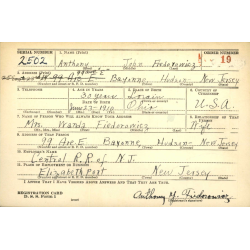 SERIAL NUMBER 1. NAME (Print) ORDER NUMBER
2502 Anthony John Fiedorowicz 19
2. ADDRESS (Print)
49 Ave E Bayonne Hudson New Jersey
3. TELEPHONE 4. AGE IN YEARS 5. PLACE OF BIRTH 6. COUNTRY OF CITIZENSHIP
30 years Lorain
DATE OF BIRTH
1910 Ohio U.S.A.
7. NAME OF PERSON WHO WILL ALWAYS KNOW YOUR ADDRESS 8. RELATIONSHIP OF THAT PERSON
Mrs. Wanda Fiedorowicz Wife
9. ADDRESS OF THAT PERSON
49 Ave E Bayonne Hudson New Jersey
10. EMPLOYER'S NAME
Central R.R. of N.J.
11. PLACE OF EMPLOYMENT OR BUSINESS
Elizabeth Port New Jersey
I AFFIRM THAT I HAVE VERIFIED ABOVE ANSWERS AND THAT THEY ARE TRUE.
REGISTRATION CARD
D. S. S. Form 1 Anthony J. Fiedorowicz